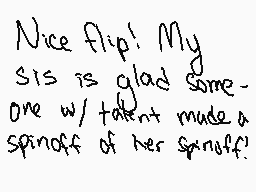 Nice flip! My
sis is glad some-
one w/ talent made a
spinoff of her spinoff!